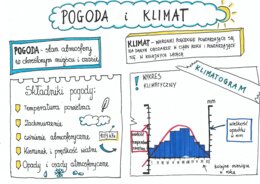 POGODA i KLIMAT
POGODA - stan atmosfery
w określonym miejscu i czasie
KLIMAT - WARUNKI POGODOWE POWTARZAJĄCE SIĘ
NA DANYM OBSZARZE W CIĄGU ROKU I POWTARZAJĄCE
SIĘ W KOLEJNYCH LATACH
Składniki pogody:
Temperatura powietrza
Zachmurzenie
ciśnienie atmosferyczne
Kierunek i prędkość wiatru
Opady i osady atmosferyczne
WYKRES
KLIMATYCZNY
KLIMATOGRAM
mm
wielkość
opadu
w mm
kolejne miesiące
w roku